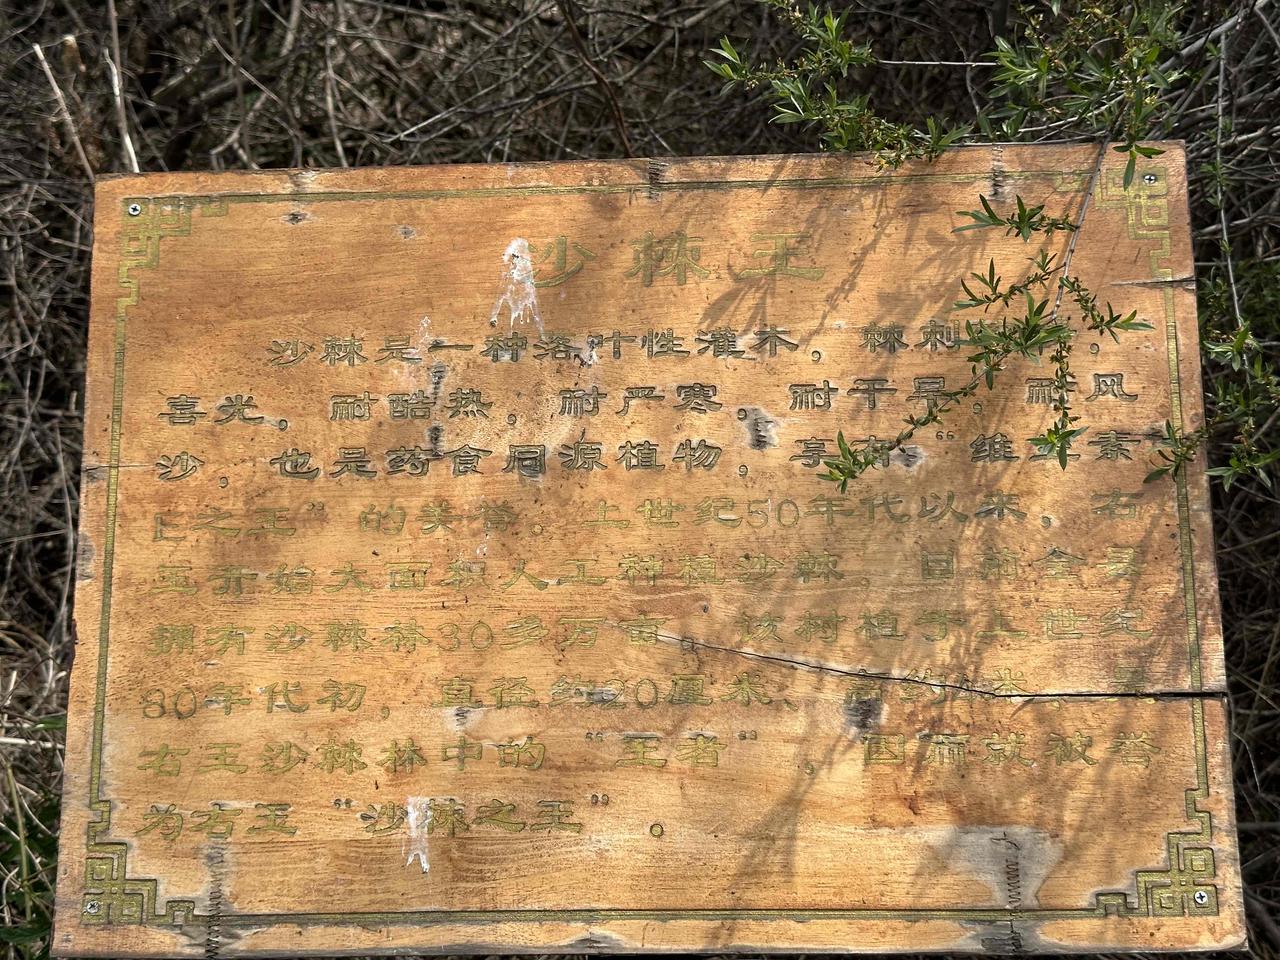 沙棘王
沙棘是一种落叶性灌木，棘刺
喜光，耐酷热，耐严寒，耐干旱，耐风
沙，也是药食同源植物，享有“维生素
C之王”的美誉。上世纪50年代以来，右
玉开始大面积人工种植沙棘。目前全县
拥有沙棘林30多万亩。该树植于上世纪
80年代初，直径约20厘米、高约 米，
右玉沙棘林中的“王者”，因而就被誉
为右玉“沙棘之王”。